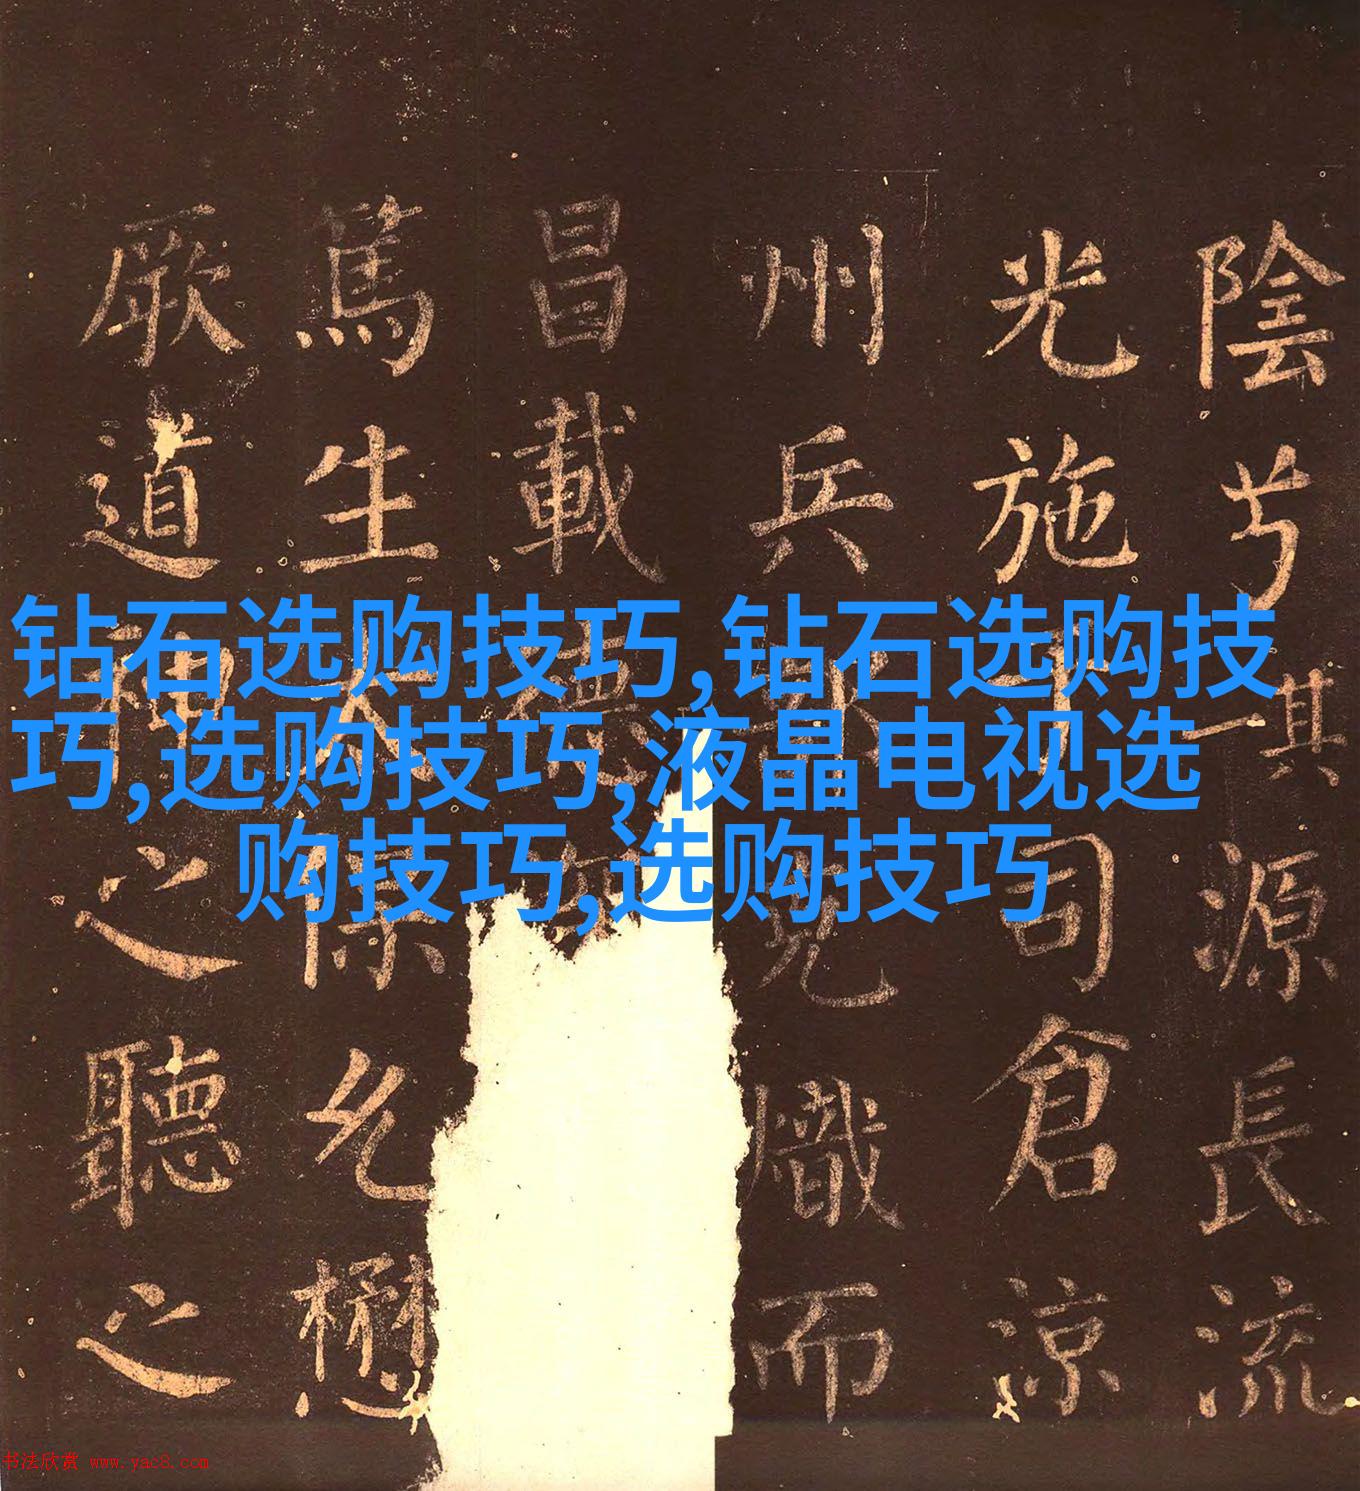 钻石选购技巧,钻石选购技
巧,选购技巧,液晶电视选
购技巧,选购技巧
陰其源長流
光施司倉涼
州兵熾而
昌載德
篤生太保允懋
厥道神之聽之
书法欣赏 www.yac8.com